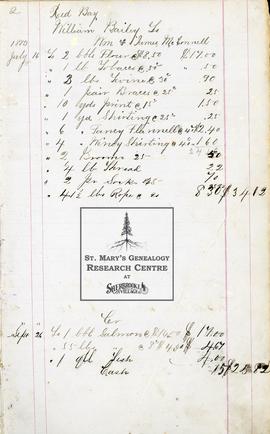 2
Red Bay
William Bailey To
Wm & James McConnell
1880
July 16 To 2 bbls Flour @ 8.50 $ 17.00
" 1 lb Tobacco @ 50 50
" 3 lbs Twine @ 30 90
" 1 pair Braces @ 25 25
" 10 yds print @ 15 1.50
" 1 yd Shirting @ 25 25
" 6 " Fancy Flannell @ 40 $ 2.40
" 4 " Shirting @ 40 1.60
" 2 Brooms 25 50
" 4 lb 22
" 2 pr Socks 35 70
" 41½ lbs Rope @ 20 8.30 $ 34 12
ST. MARY'S GENEALOGY
RESEARCH CENTRE
AT
SHERBROOKE
VILLAGE
Cr
Sept 26 To 1 bbl Salmon @ $ $ 17.00
" 55 lbs " @ 8 $ 4.00 $ 4.67
" 1 qtl Fish 4.00
Cash